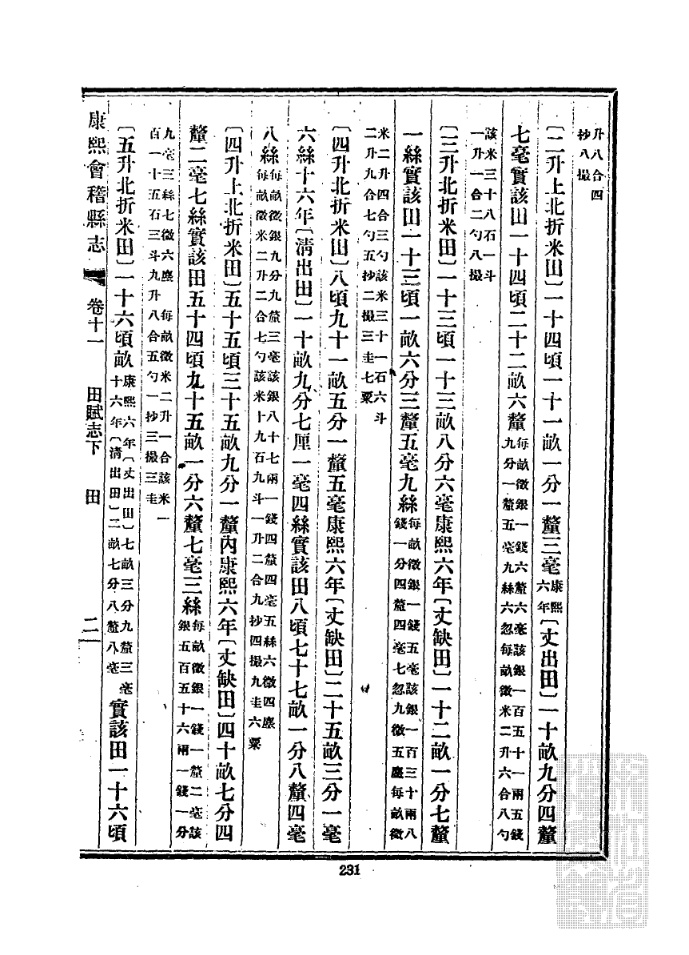 升八合四
抄八撮
〔二升上北折米田〕一十四頃一十一畝一分一釐三毫康熙六年〔丈出田〕一十畝九分四釐
七毫實該田一十四頃二十二畝六釐每畝徵銀一錢六釐六毫該銀一百五十一兩五錢九分一釐五毫九絲六忽每畝徵米二升六合八勺
該米三十八石一斗
一升一合二勺八撮
〔三升北折米田〕一十三頃一十三畝八分六毫康熙六年〔丈缺田〕一十二畝一分七釐
一絲實該田一十三頃一畝六分三釐五毫九絲每畝徵銀一錢五毫該銀一百三十兩八錢一分四釐四毫七忽九微五塵每畝徵
米二升四合三勺該米三十一石六斗
二升九合七勺五抄二撮三圭七粟
〔四升北折米田〕八頃九十一畝五分一釐五毫康熙六年〔丈缺田〕二十五畝三分一毫
六絲十六年〔清出田〕一十畝九分七厘一毫四絲實該田八頃七十七畝一分八釐四毫
八絲每畝徵銀九分九釐三毫該銀八十七兩一錢四釐四毫五絲六微四塵每畝徵米二升二合七勺該米十九石九斗一升二合九抄四撮九圭六粟
〔四升上北折米田〕五十五頃三十五畝九分一釐內康熙六年〔丈缺田〕四十畝七分四
釐二毫七絲實該田五十四頃九十五畝一分六釐七毫三絲每畝徵銀一錢一釐二毫該銀五百五十六兩一錢一分
九毫三絲七微六塵每畝徵米二升一合該米一
百一十五石三斗九升八合五勺一抄三撮三圭
〔五升北折米田〕一十六頃畝康熙六年〔丈出田〕七畝三分九釐三毫十六年〔清出田〕二畝七分八釐八毫實該田一十六頃
康熙會稽縣志　卷十一　田賦志下　田　二
231